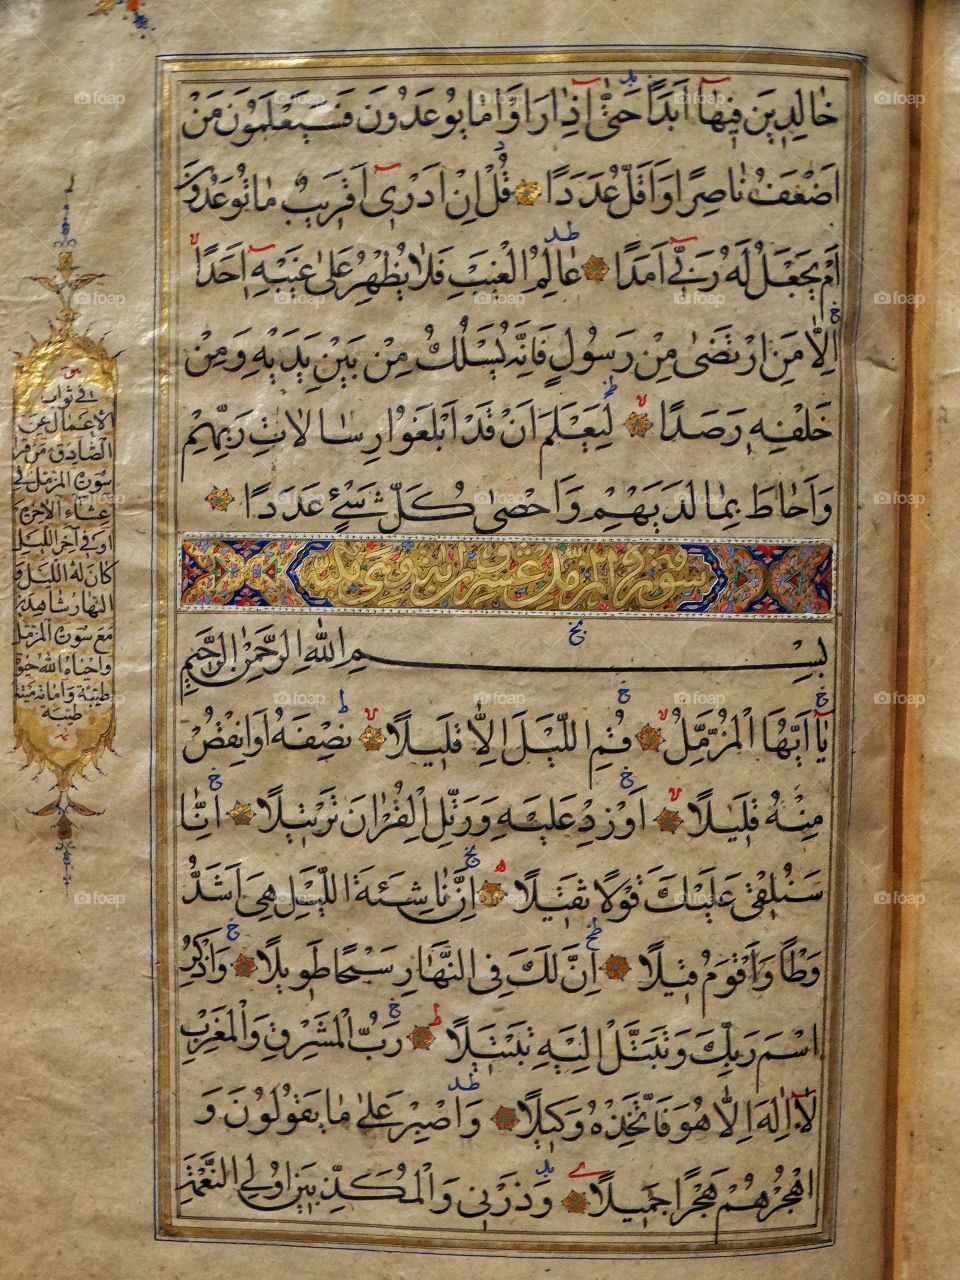 خَالِدِينَ فِيهَآ أَبَدًا حَتَّىٰ إِذَا رَأَوْا مَا يُوعَدُونَ فَسَيَعْلَمُونَ مَنْ
أَضْعَفُ نَاصِرًا وَأَقَلُّ عَدَدًا قُلْ إِنْ أَدْرِىٓ أَقَرِيبٌ مَا تُوعَدُونَ
أَمْ يَجْعَلُ لَهُ رَبِّىٓ أَمَدًا عَالِمُ الْغَيْبِ فَلَا يُظْهِرُ عَلَىٰ غَيْبِهِٓ أَحَدًا
إِلَّا مَنِ ارْتَضَىٰ مِنْ رَسُولٍ فَإِنَّهُ يَسْلُكُ مِنْ بَيْنِ يَدَيْهِ وَمِنْ
خَلْفِهِ رَصَدًا لِيَعْلَمَ أَنْ قَدْ أَبْلَغُوا رِسَالَاتِ رَبِّهِمْ
وَأَحَاطَ بِمَا لَدَيْهِمْ وَأَحْصَىٰ كُلَّ شَىْءٍ عَدَدًا
سورة المزمل عشرون آية وهي مكية
بِسْمِ اللَّهِ الرَّحْمَٰنِ الرَّحِيمِ
يَآ أَيُّهَا الْمُزَّمِّلُ قُمِ اللَّيْلَ إِلَّا قَلِيلًا نِصْفَهُ أَوِ انْقُصْ
مِنْهُ قَلِيلًا أَوْ زِدْ عَلَيْهِ وَرَتِّلِ الْقُرْآنَ تَرْتِيلًا إِنَّا
سَنُلْقِى عَلَيْكَ قَوْلًا ثَقِيلًا إِنَّ نَاشِئَةَ اللَّيْلِ هِىَ أَشَدُّ
وَطْأً وَأَقْوَمُ قِيلًا إِنَّ لَكَ فِى النَّهَارِ سَبْحًا طَوِيلًا وَاذْكُرِ
اسْمَ رَبِّكَ وَتَبَتَّلْ إِلَيْهِ تَبْتِيلًا رَبُّ الْمَشْرِقِ وَالْمَغْرِبِ
لَآ إِلَٰهَ إِلَّا هُوَ فَاتَّخِذْهُ وَكِيلًا وَاصْبِرْ عَلَىٰ مَا يَقُولُونَ وَ
اهْجُرْهُمْ هَجْرًا جَمِيلًا وَذَرْنِى وَالْمُكَذِّبِينَ أُولِى النَّعْمَةِ
في ثواب
الاعمال عن
الصادق من قرا
سورة المزمل في
عشاء الاخرة
او في آخر الليل
كان له الليل و
النهار شاهدين
مع سورة المزمل
واحياه الله حيوة
طيبة واماته ميتة
طيبة
foap